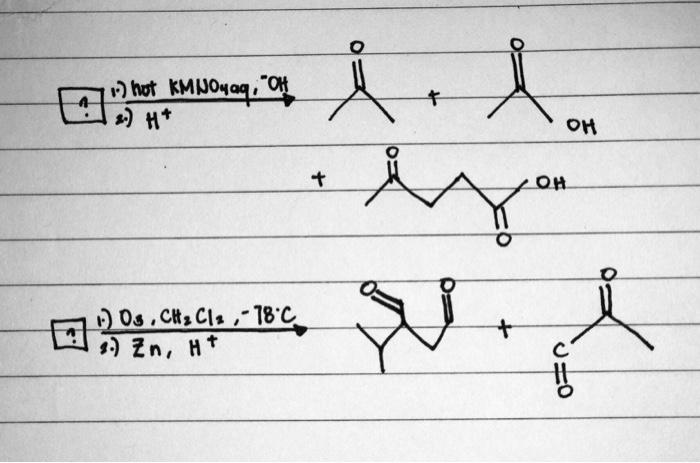 ? 1.) hot KMNO4aq, ⁻OH
2.) H+
O O
+ OH
+ O OH
O
? 1.) O3, CH2Cl2, -78°C
2.) Zn, H+
O O + O
C
O